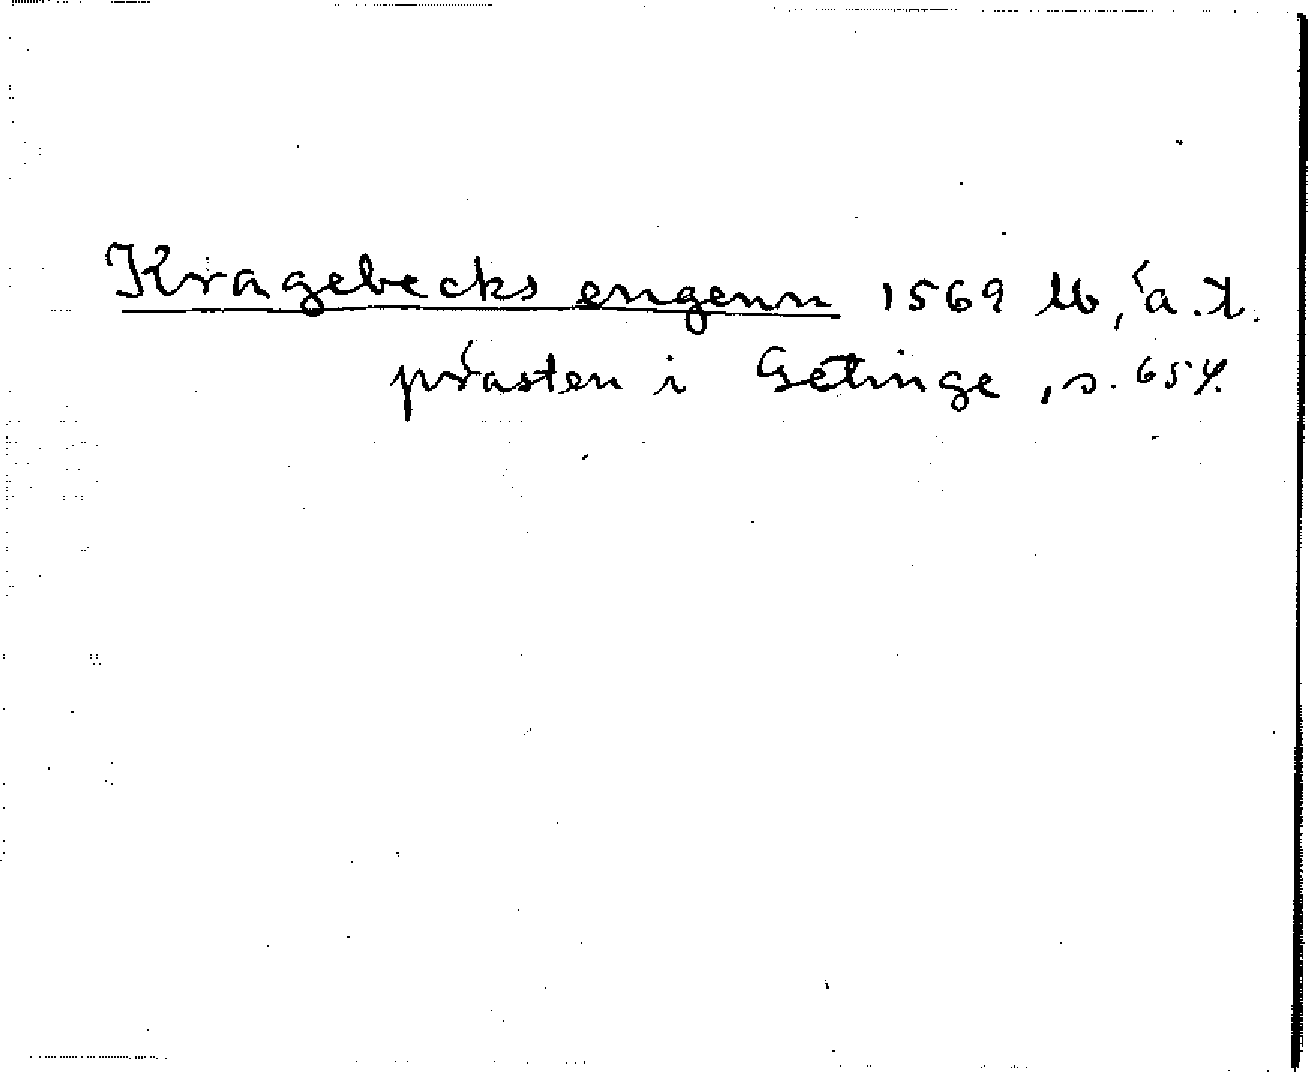 Kragebecks engenn 1569 lb, ä.t.
prästen i Getinge, s. 654.